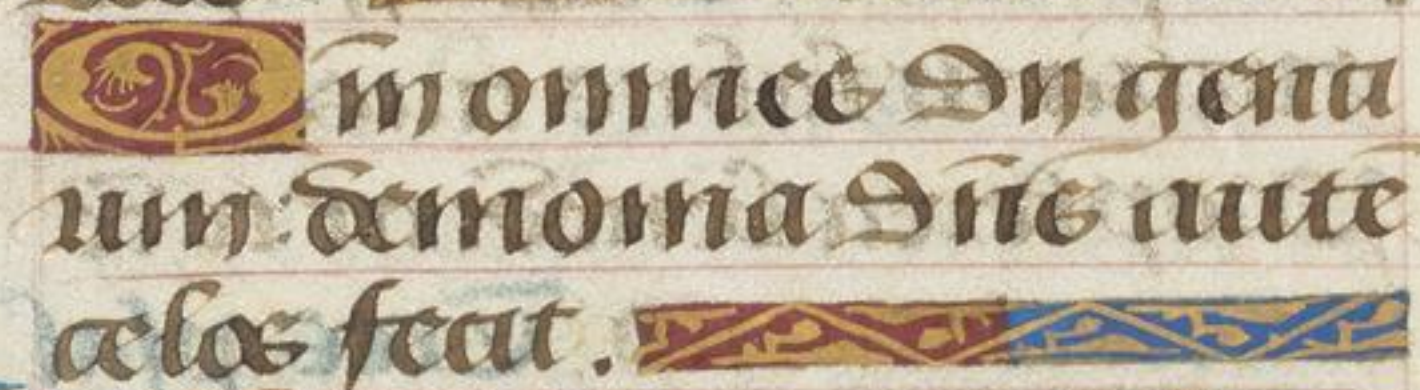 Qm̄ omnes Dii genti
um: demonia Dn̄s aute
celos fecit.